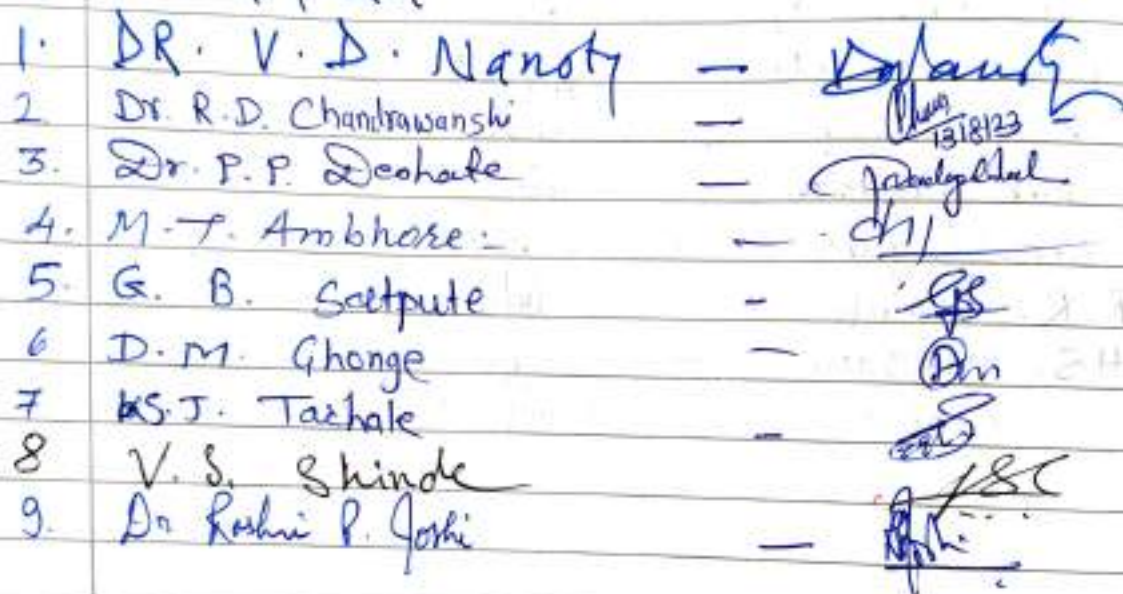 1. DR. V. D. Nanoty —
2 Dr. R.D. Chandrawanshi — 13/8/23
3. Dr. P. P. Deohate —
4. M.T. Ambhore :- —
5. G. B. Satpute -
6 D. M. Ghonge — Dm
7 S. J. Tarhale -
8 V. S. Shinde
9. Dr Roshni P. Joshi —